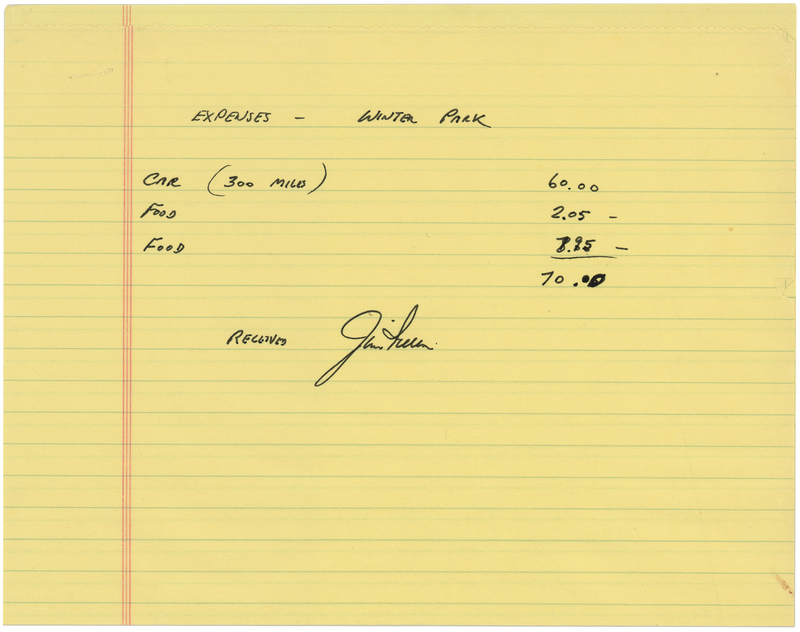 EXPENSES – WINTER PARK
CAR (300 MILES) 60.00
FOOD 2.05 –
FOOD 7.95 –
70.00
RECEIVED